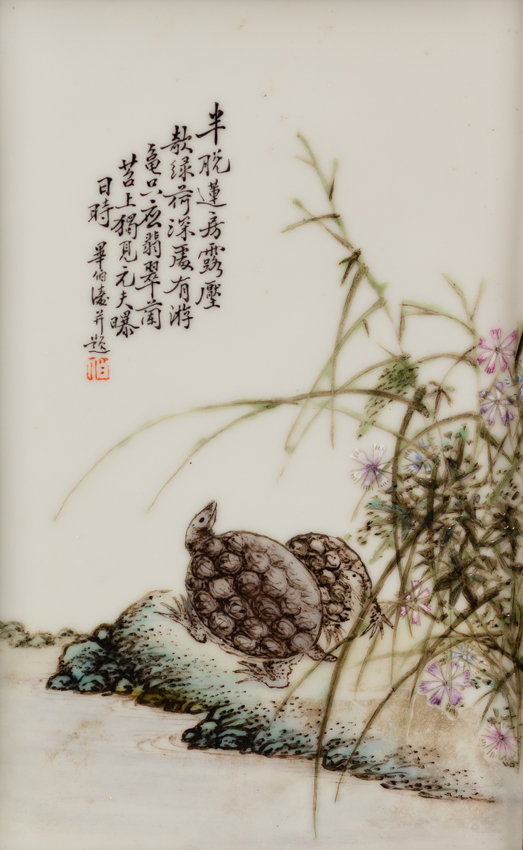 半脱蓮房露壓
欹綠荷深處有游
龜只應翡翠蘭
苕上獨見元夫曝
日時 畢伯濤并題